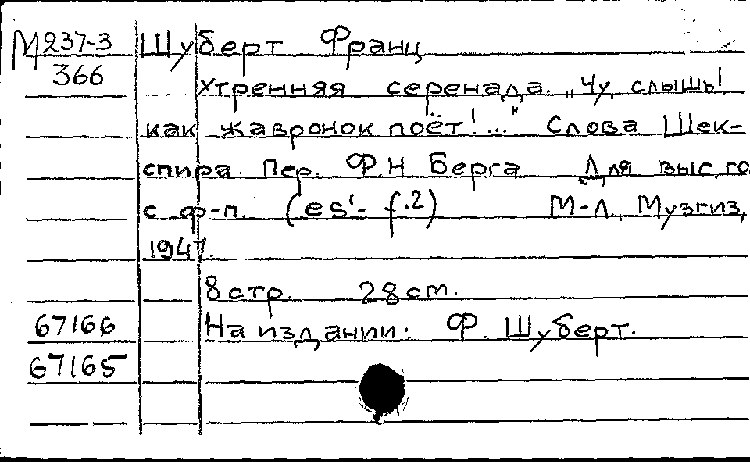 М237-3 Шуберт Франц
366 Утренняя серенада. „Чу, слышь!
как жавронок поёт!..." Слова Шек-
спира Пер. Ф.Н Берга Для выс. го
с ф-п. (es'- f.2) М-Л, Музгиз,
1947.
8 стр. 28 cm.
67166 На издании: Ф. Шуберт.
67165